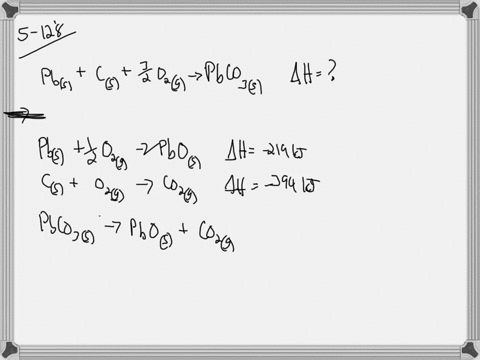 5-128
Pb(s) + C(s) + 3/2 O2(g) → PbCO3(s) ΔH = ?
→
Pb(s) + 1/2 O2(g) → PbO(s) ΔH = -219 kJ
C(s) + O2(g) → CO2(g) ΔH = -394 kJ
PbCO3(s) → PbO(s) + CO2(g)